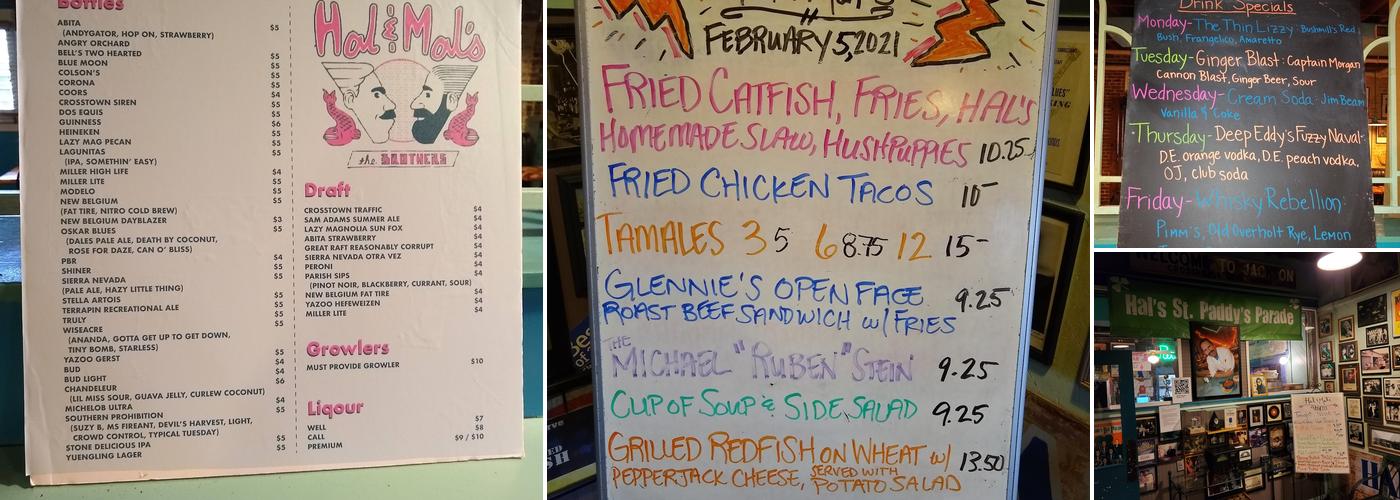 Bottles
ABITA $5
(ANDYGATOR, HOP ON, STRAWBERRY)
ANGRY ORCHARD
BELL'S TWO HEARTED $5
BLUE MOON $5
COLSON'S $5
CORONA $5
COORS $4
CROSSTOWN SIREN $5
DOS EQUIS $5
GUINNESS $6
HEINEKEN $5
LAZY MAG PECAN $5
LAGUNITAS $5
(IPA, SOMETHIN' EASY)
MILLER HIGH LIFE $4
MILLER LITE $5
MODELO $5
NEW BELGIUM $5
(FAT TIRE, NITRO COLD BREW)
NEW BELGIUM DAYBLAZER $3
OSKAR BLUES $5
(DALES PALE ALE, DEATH BY COCONUT,
ROSE FOR DAZE, CAN O' BLISS)
PBR $4
SHINER $5
SIERRA NEVADA $5
(PALE ALE, HAZY LITTLE THING)
STELLA ARTOIS $5
TERRAPIN RECREATIONAL ALE $5
TRULY $5
WISEACRE $5
(ANANDA, GOTTA GET UP TO GET DOWN,
TINY BOMB, STARLESS)
YAZOO GERST $5
BUD $4
BUD LIGHT $4
CHANDELEUR $6
(LIL MISS SOUR, GUAVA JELLY, CURLEW COCONUT)
MICHELOB ULTRA $4
SOUTHERN PROHIBITION $5
(SUZY B, MS FIREANT, DEVIL'S HARVEST, LIGHT,
CROWD CONTROL, TYPICAL TUESDAY)
STONE DELICIOUS IPA $5
YUENGLING LAGER $5
Hal & Mal's
the BROTHERS
Draft
CROSSTOWN TRAFFIC $4
SAM ADAMS SUMMER ALE $4
LAZY MAGNOLIA SUN FOX $4
ABITA STRAWBERRY $4
GREAT RAFT REASONABLY CORRUPT $4
SIERRA NEVADA OTRA VEZ $4
PERONI $4
PARISH SIPS $4
(PINOT NOIR, BLACKBERRY, CURRANT, SOUR)
NEW BELGIUM FAT TIRE $4
YAZOO HEFEWEIZEN $4
MILLER LITE $4
Growlers
MUST PROVIDE GROWLER $10
Liqour
WELL $7
CALL $8
PREMIUM $9 / $10
FEBRUARY 5, 2021
FRIED CATFISH, FRIES, HAL'S
HOMEMADE SLAW, HUSHPUPPIES 10.25
FRIED CHICKEN TACOS 10-
TAMALES 3 5 6 8.75 12 15-
GLENNIE'S OPEN FACE 9.25
ROAST BEEF SANDWICH W/ FRIES
THE
MICHAEL "RUBEN" STEIN 9.25
CUP OF SOUP & SIDE SALAD 9.25
GRILLED REDFISH ON WHEAT W/ 13.50
PEPPERJACK CHEESE, SERVED WITH POTATO SALAD
Drink Specials
Monday- The Thin Lizzy: Bushmill's Red
Bush, Frangelico, Amaretto
Tuesday- Ginger Blast: Captain Morgan
Cannon Blast, Ginger Beer, Sour
Wednesday- Cream Soda- Jim Beam
Vanilla & Coke
Thursday- Deep Eddy's Fuzzy Naval-
D.E. orange vodka, D.E. peach vodka,
OJ, club soda
Friday- Whisky Rebellion:
Pimm's, Old Overholt Rye, Lemon
WELCOME TO JACKSON
Hal's St. Paddy's Parade